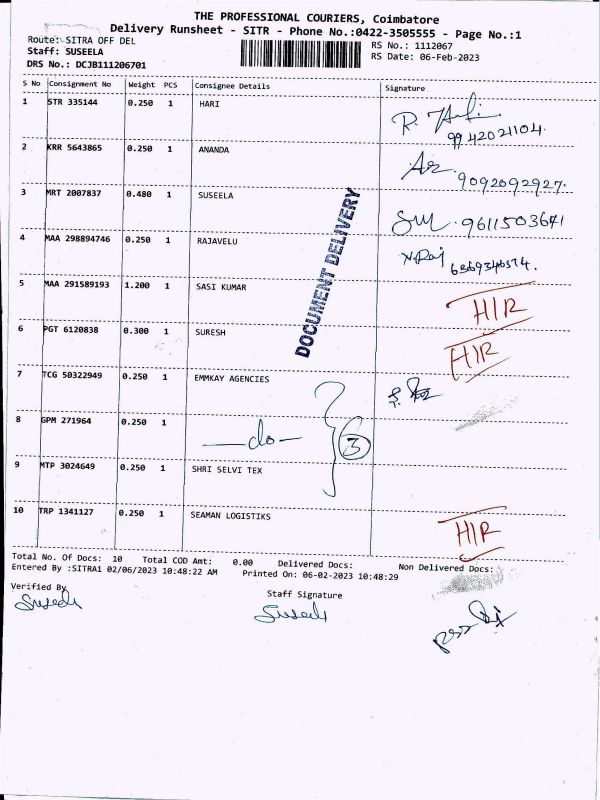 THE PROFESSIONAL COURIERS, Coimbatore
Delivery Runsheet - SITR - Phone No.:0422-3505555 - Page No.:1
Route: SITRA OFF DEL
RS No.: 1112067
Staff: SUSEELA
RS Date: 06-Feb-2023
DRS No.: DCJB111206701
S No Consignment No Weight PCS Consignee Details Signature
1 STR 335144 0.250 1 HARI
9942021104
2 KRR 5643865 0.250 1 ANANDA
9092092927.
3 MRT 2007837 0.480 1 SUSEELA
9611503641
4 MAA 298894746 0.250 1 RAJAVELU
5 MAA 291589193 1.200 1 SASI KUMAR
HIR
6 PGT 6120838 0.300 1 SURESH
HIR
7 TCG 50322949 0.250 1 EMMKAY AGENCIES
8 GPM 271964 0.250 1 —do— 3
9 MTP 3024649 0.250 1 SHRI SELVI TEX
10 TRP 1341127 0.250 1 SEAMAN LOGISTIKS
HIR
DOCUMENT DELIVERY
Total No. Of Docs: 10 Total COD Amt: 0.00 Delivered Docs: Non Delivered Docs:
Entered By :SITRA1 02/06/2023 10:48:22 AM Printed On: 06-02-2023 10:48:29
Verified By
Staff Signature